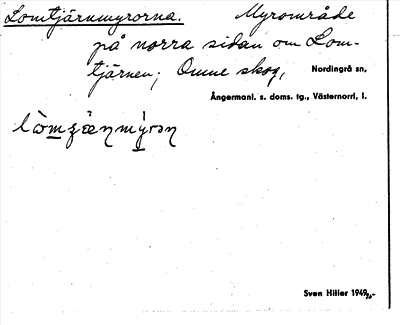 Lomtjärnmyrorna. Myrområde
på norra sidan om Lom-
tjärnen; Omne skog, Nordingrå sn,
Ångermanl. s. doms. tg., Västernorrl, l.
Sven Hiller 1949